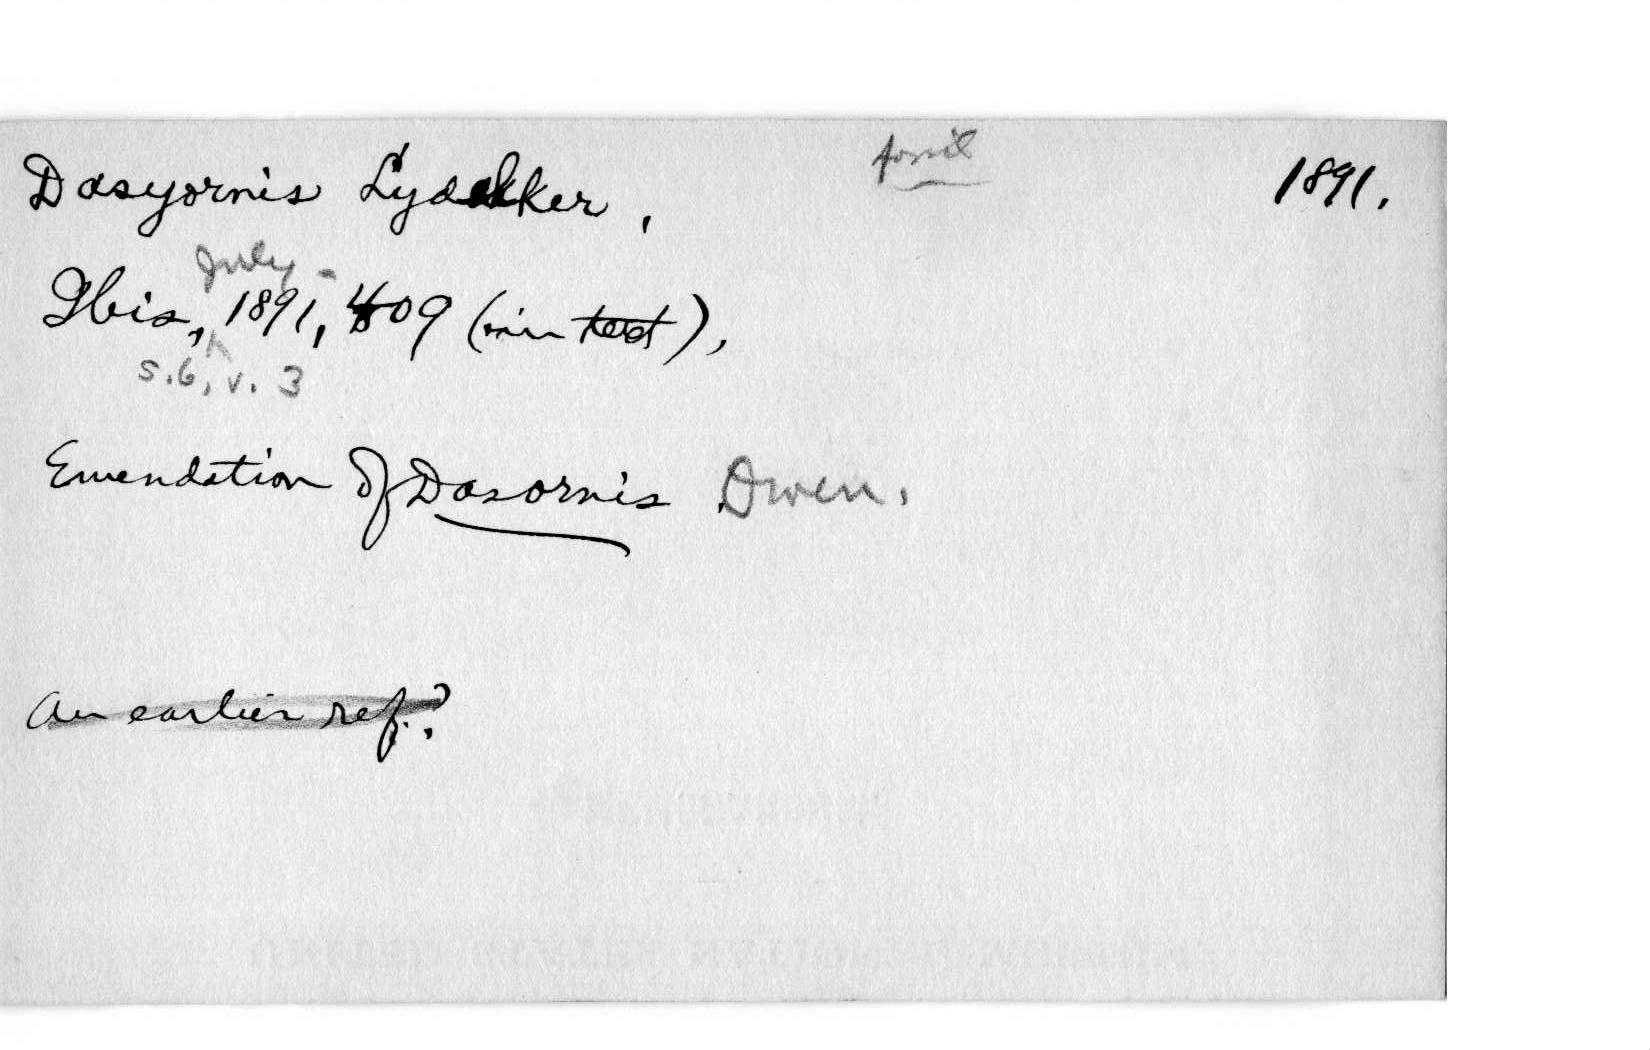 Dasyornis Lydekker, fossil 1891.
July
Ibis, 1891, 409 (in text),
s.6, v. 3
Emendation of Dasornis Owen.
An earlier ref.?